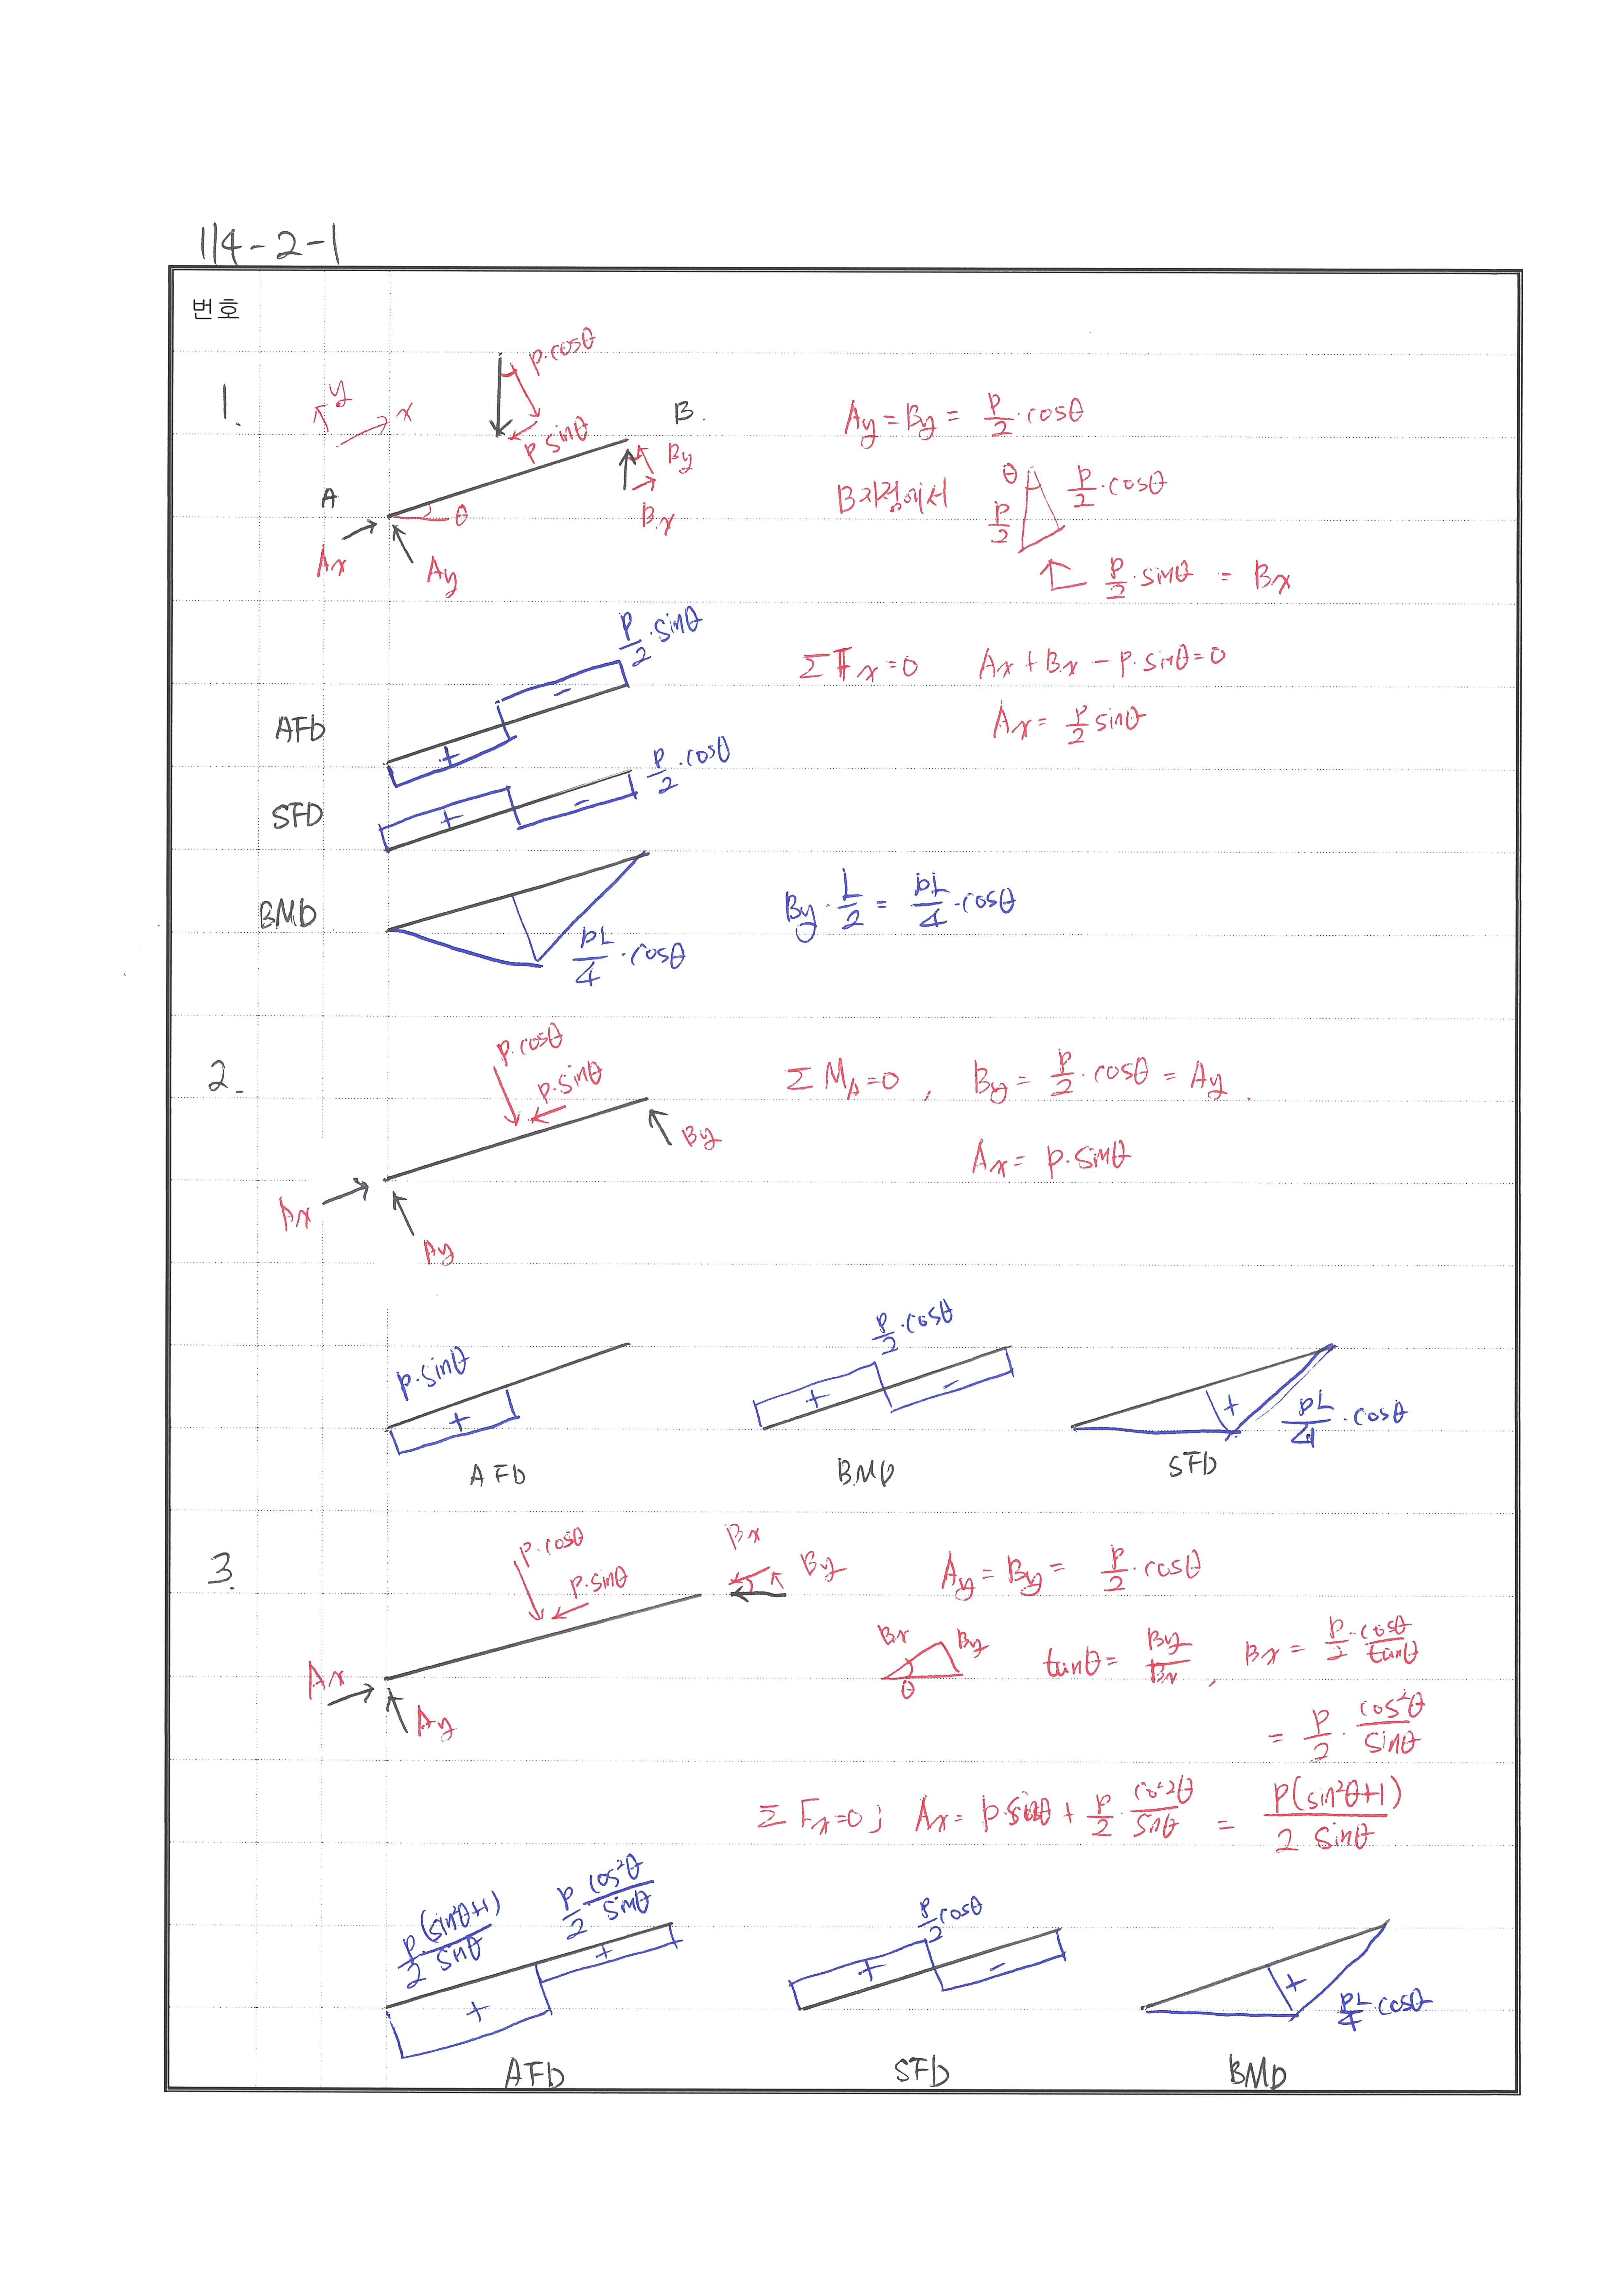 114-2-1
번호
1.
y
x
P·cosθ
P sinθ
B.
By
Bx
A
θ
Ax
Ay
Ay = By = P/2 · cosθ
B지점에서
θ
P/2
P/2 · cosθ
P/2 · sinθ = Bx
AFD
+
-
P/2 · sinθ
ΣFx=0 Ax + Bx - P·sinθ=0
Ax = P/2 sinθ
SFD
+
-
P/2 · cosθ
BMD
PL/4 · cosθ
By · L/2 = PL/4 · cosθ
2.
P·cosθ
P·sinθ
By
Ax
Ay
ΣMA=0, By = P/2 · cosθ = Ay.
Ax = P·sinθ
P·sinθ
+
AFD
P/2 · cosθ
+
-
BMD
+
PL/4 · cosθ
SFD
3.
P·cosθ
P·sinθ
Bx
By
Ax
Ay
Ay = By = P/2 · cosθ
Bx
By
θ
tanθ = By/Bx, Bx = P/2 · cosθ/tanθ
= P/2 · cos²θ/sinθ
ΣFx=0; Ax = P·sinθ + P/2 · cos²θ/sinθ = P(sin²θ+1)/2 sinθ
P/2 · (sin²θ+1)/sinθ
P/2 · cos²θ/sinθ
+
+
AFD
P/2 cosθ
+
-
SFD
+
PL/4 · cosθ
BMD